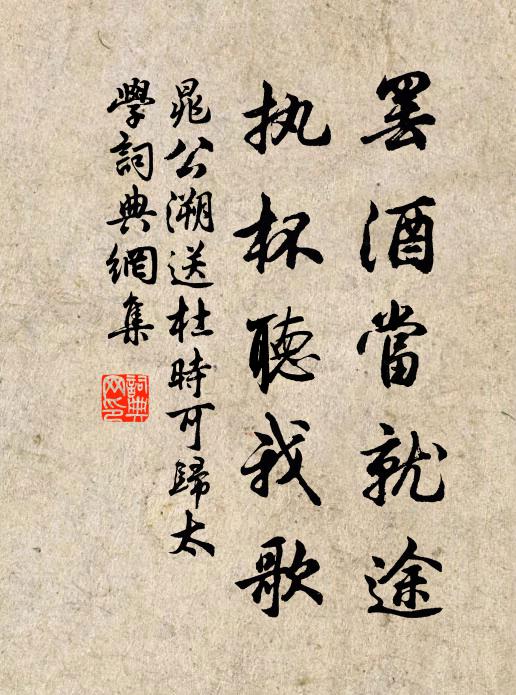 罢酒當就途
执杯聽我歌
晁公溯送杜時可歸太
學詞典網集
詞典網印